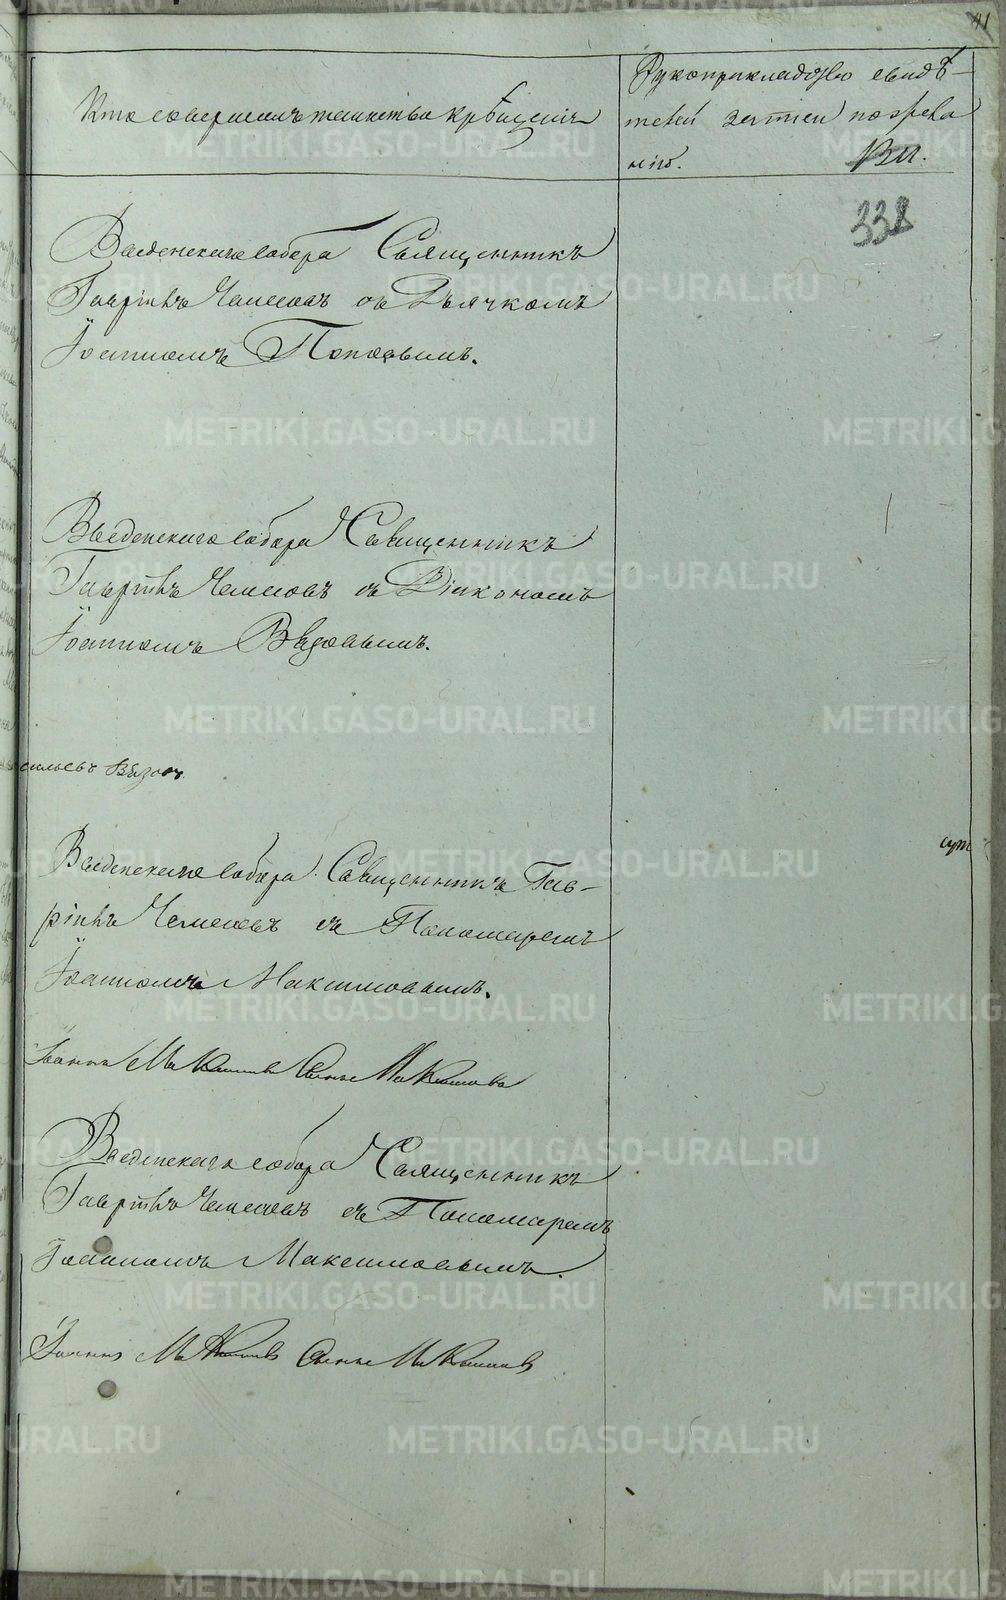 41
Кто совершалъ таинство крещенія
Рукоприкладство свидѣ-
телей записи по жела
нію. Ви.
338
Введенскаго собора Священникъ
Гавріилъ Чемесовъ съ Дьячкомъ
Іоанномъ Поповымъ.
Введенскаго собора Священникъ
Гавріилъ Чемесовъ съ Діакономъ
Іоанномъ Вѣдовымъ.
сильевъ
Введенскаго собора Священникъ Гав-
ріилъ Чемесовъ съ Пономаремъ
Іоанномъ Максимовымъ.
Іоаннъ Максимовъ
Введенскаго собора Священникъ
Гавріилъ Чемесовъ съ Пономаремъ
Іоанномъ Максимовымъ.
Іоаннъ Максимовъ
METRIKI.GASO-URAL.RU